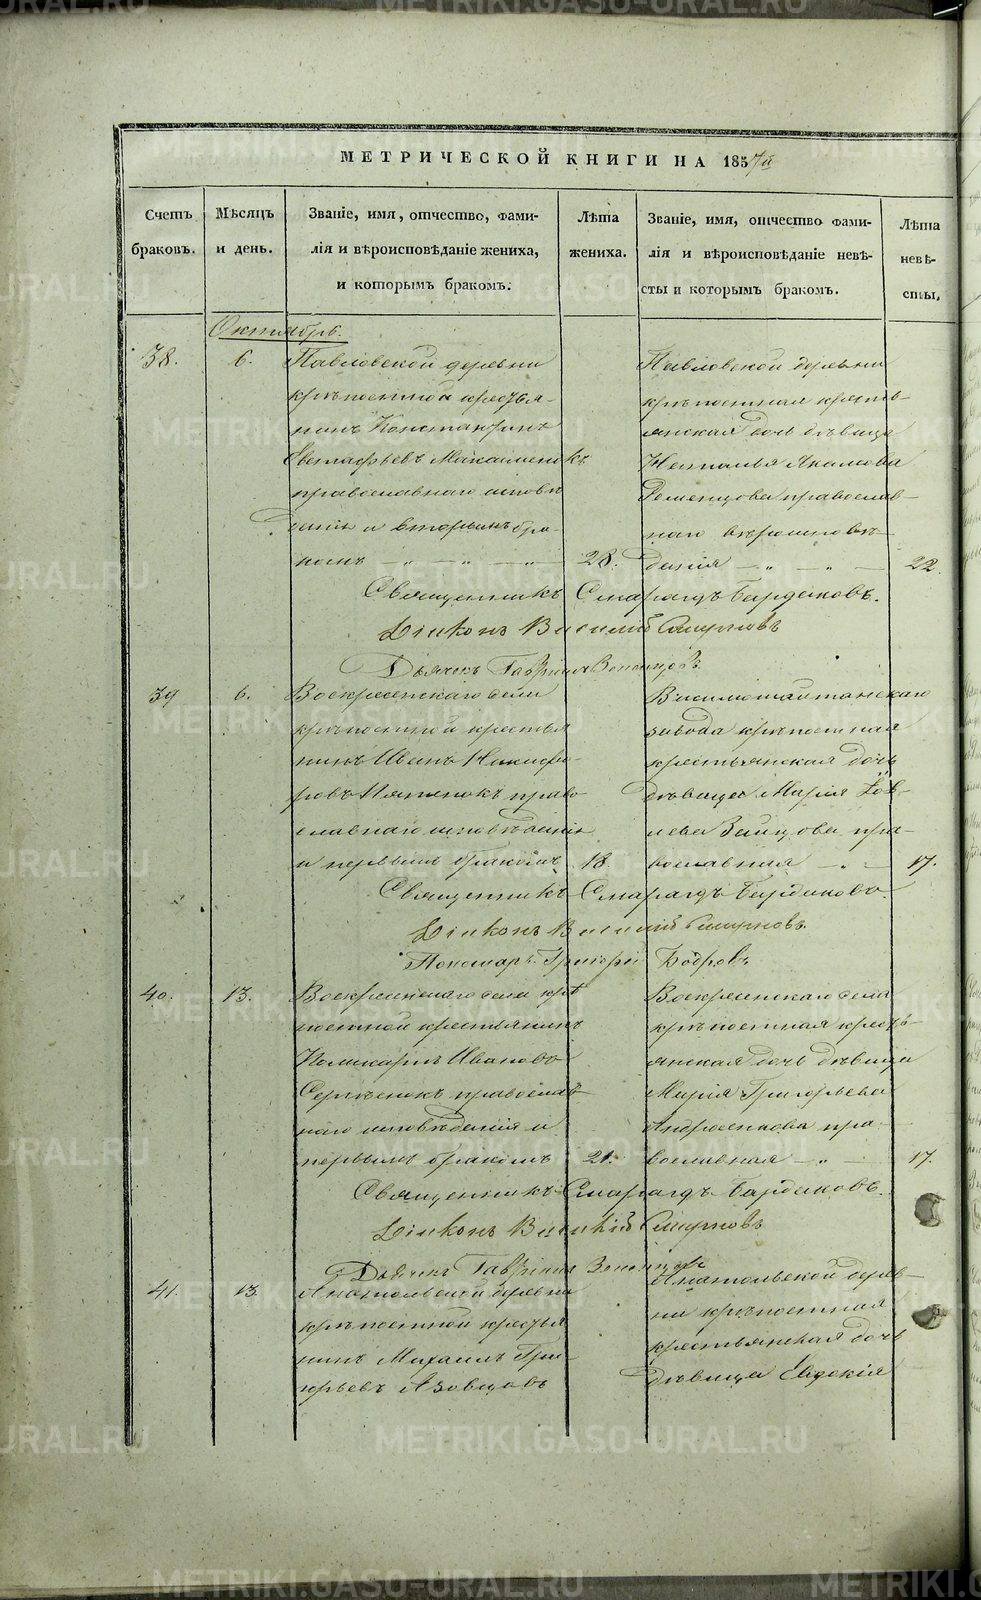 МЕТРИЧЕСКОЙ КНИГИ НА 1857й
Счетъ браковъ.
Мѣсяцъ и день.
Званіе, имя, отчество, фами-
лія и вѣроисповѣданіе жениха,
и которымъ бракомъ.
Лѣта жениха.
Званіе, имя, отчество фами-
лія и вѣроисповѣданіе невѣ-
сты и которымъ бракомъ.
Лѣта невѣ-
сты.
Октябрь.
38. 6. Павловской деревни
крѣпостной крестья-
нинъ Константинъ
Евстафьевъ Максименокъ
православнаго исповѣ
данія и вторымъ бра-
комъ 28.
Павловской деревни
крѣпостная кресть-
янская дочь дѣвица
Наталья Акимова
православ-
наго вѣроисповѣ-
данія 22.
Священникъ Смарагдъ Бардаковъ.
Діаконъ Василій Смирновъ
Дьячекъ Гавріилъ
39 6. Воскресенскаго села
крѣпостной кресья
нинъ Иванъ Никифо-
ровъ право
славнаго исповѣданія
и первымъ бракомъ 18
Висимошайтанскаго
завода крѣпостная
крестьянская дочь
дѣвица Марія Іов-
лева Зайцова пра-
вославная 17.
Священникъ Смарагдъ Бардаковъ
Діаконъ Василій Смирновъ.
Пономарь Григорій Бобровъ
40. 13. Воскресенскаго села крѣ
постной крестьянинъ
Поликарпъ Ивановъ
Сергѣенокъ православ
наго исповѣданія и
первымъ бракомъ 21.
Воскресенскаго села
крѣпостная кресть-
янская дочь дѣвица
Марія Григорьева
Андроенкова пра-
вославная 17.
Священникъ Смарагдъ Бардаковъ.
Діаконъ Василій Смирновъ
Дьячекъ Гавріилъ
41. 13 Анатольевской деревни
крѣпостной крестья
нинъ Михаилъ Гри-
горьевъ Азовцовъ
Анатольской дерев-
ни крѣпостная
крестьянская дочь
дѣвица Евдокія
METRIKI.GASO-URAL.RU